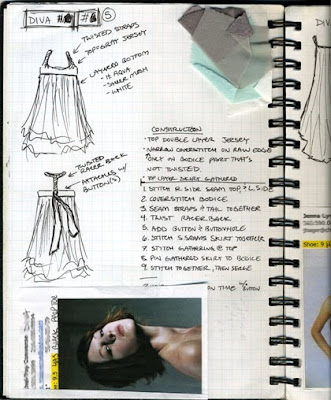 DIVA #6 5
TWISTED STRAPS
TOP GRAY JERSEY
LAYERED BOTTOM
- 1X AQUA
- SHEER MESH
- WHITE
TWISTED
RACER BACK
ATTACHES W/
BUTTON(S)
CONSTRUCTION
- TOP DOUBLE LAYER JERSEY
- NARROW COVERSTITCH ON RAW EDGE
ONLY ON BODICE PART THAT'S
NOT TWISTED.
LAYER GATHERED
1. STITCH R SIDE SEAM TOP, & L SIDE
2. COVERSTITCH BODICE
3. SEAM STRAPS & TAIL TOGETHER
4. TWIST RACER BACK
5. ADD BUTTON & BUTTONHOLE
6. STITCH S. SEAMS SKIRT TOGETHER
7. STITCH GATHERING @ TOP
8. PIN GATHERED SKIRT TO BODICE
9. STITCH TOGETHER, THEN SERGE
ON TIME W/ BUTTON
Shoe: 9